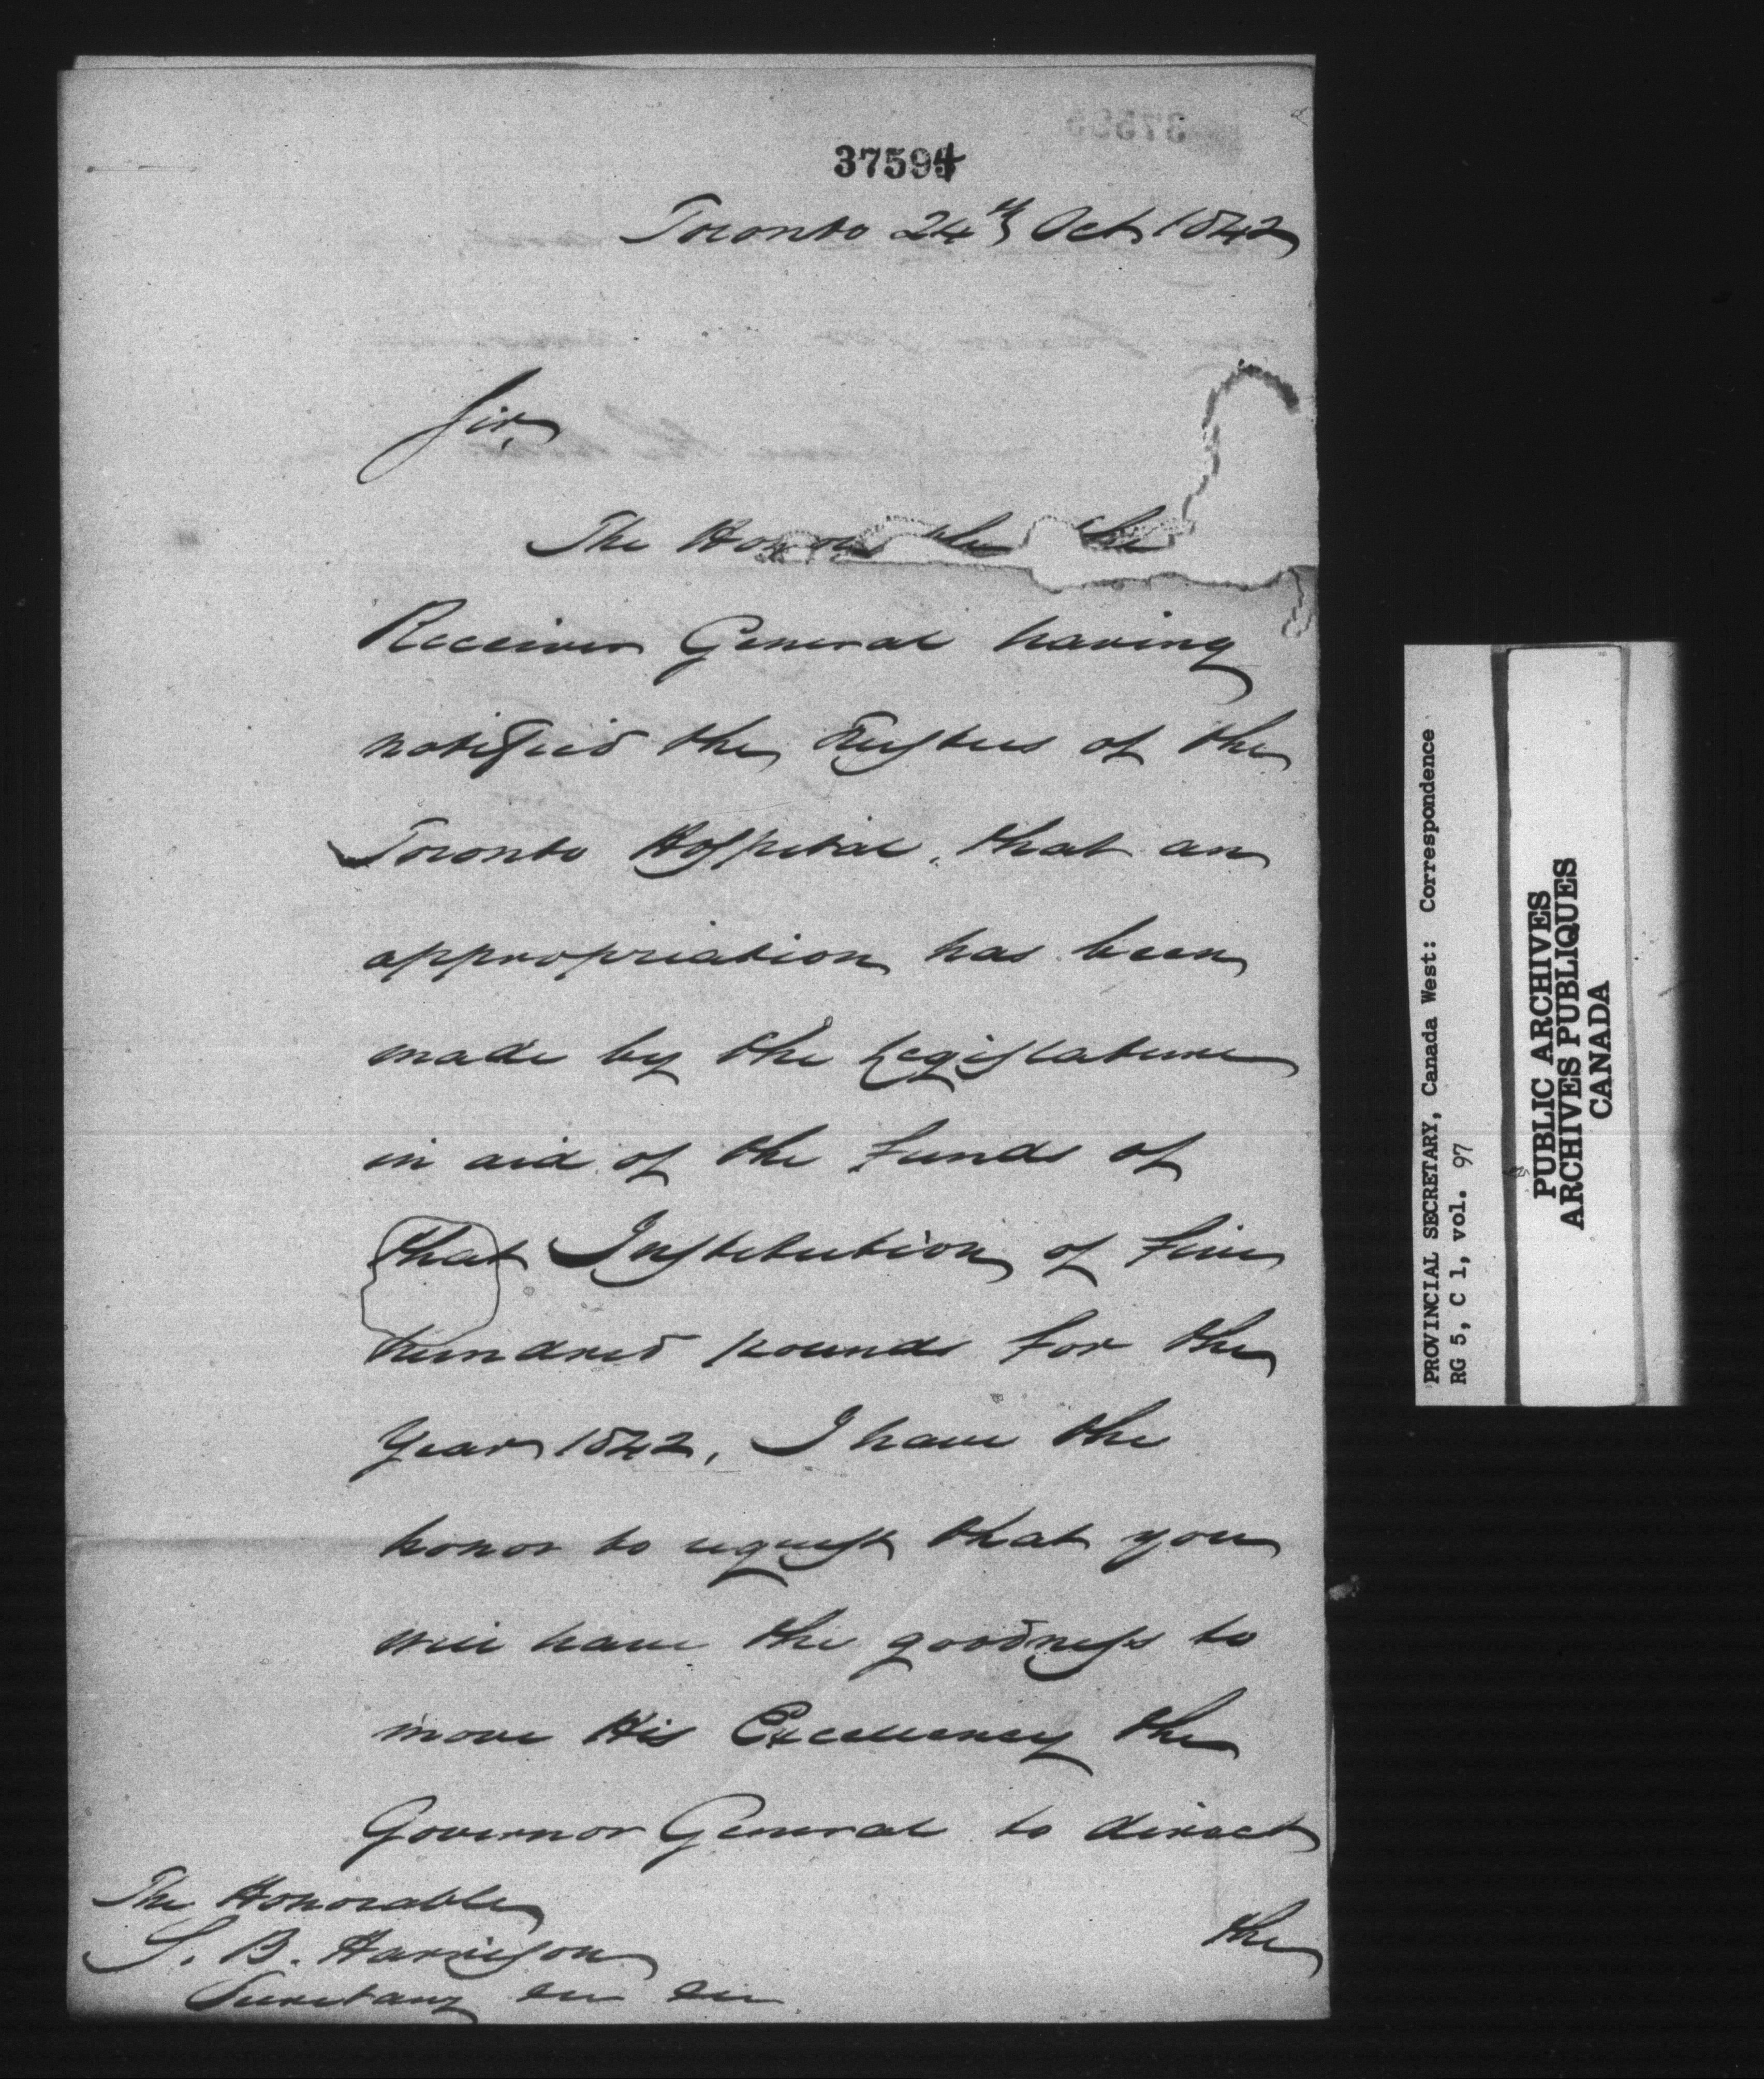 37594
Toronto 24th Oct 1842
Sir,
The Honorable the
Receiver General having
notified the Trustees of the
Toronto Hospital, that an
appropriation has been
made by the Legislature
in aid of the funds of
that Institution of five
hundred pounds for the
Year 1842, I have the
honor to request that you
will have the goodness to
move His Excellency the
Governor General to direct
the
The Honorable
S. B. Harrison
Secretary
PROVINCIAL SECRETARY, Canada West: Correspondence
RG 5, C 1, vol. 97
PUBLIC ARCHIVES
ARCHIVES PUBLIQUES
CANADA